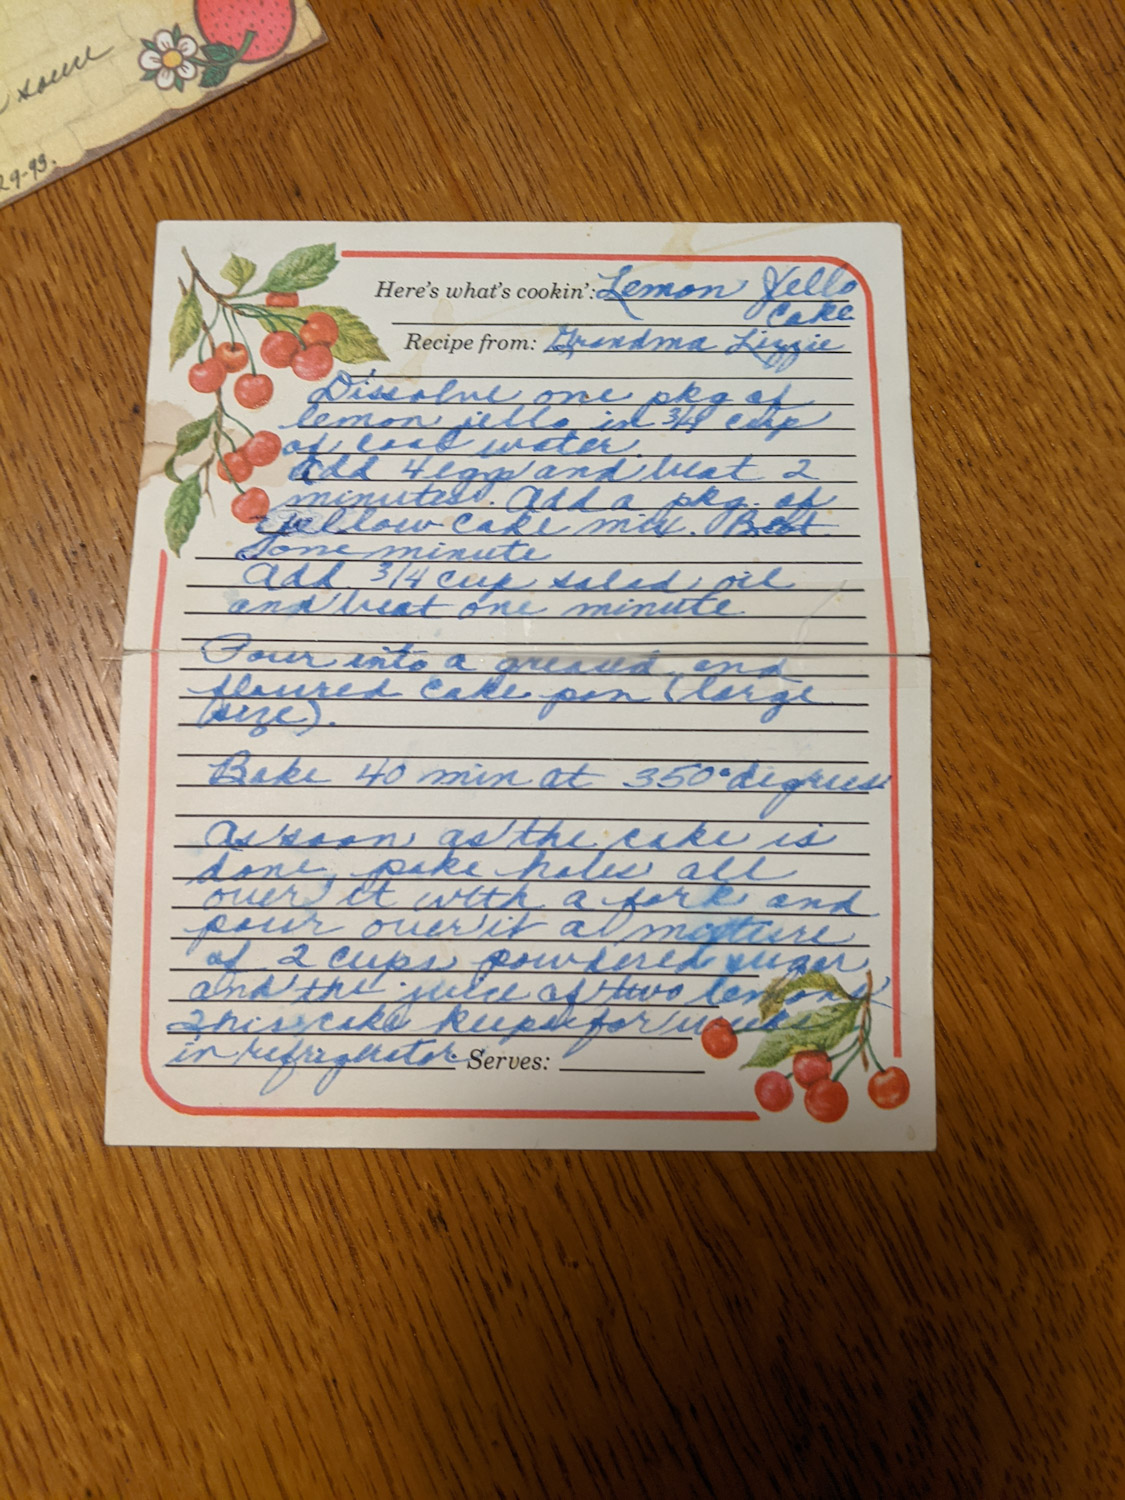 some
29-93.
Here's what's cookin': Lemon Jello
Cake
Recipe from: Grandma Lizzie
Dissolve one pkg of
lemon jello in 3/4 cup
of cool water.
Add 4 eggs and beat 2
minutes. Add a pkg. of
yellow cake mix. Beat
one minute
Add 3/4 cup salad oil
and beat one minute
Pour into a greased and
floured cake pan (large
size).
Bake 40 min at 350° degrees
As soon as the cake is
done, poke holes all
over it with a fork and
pour over it a mixture
of 2 cups powdered sugar
and the juice of two lemons
This cake keeps for weeks
in refrigerator. Serves: